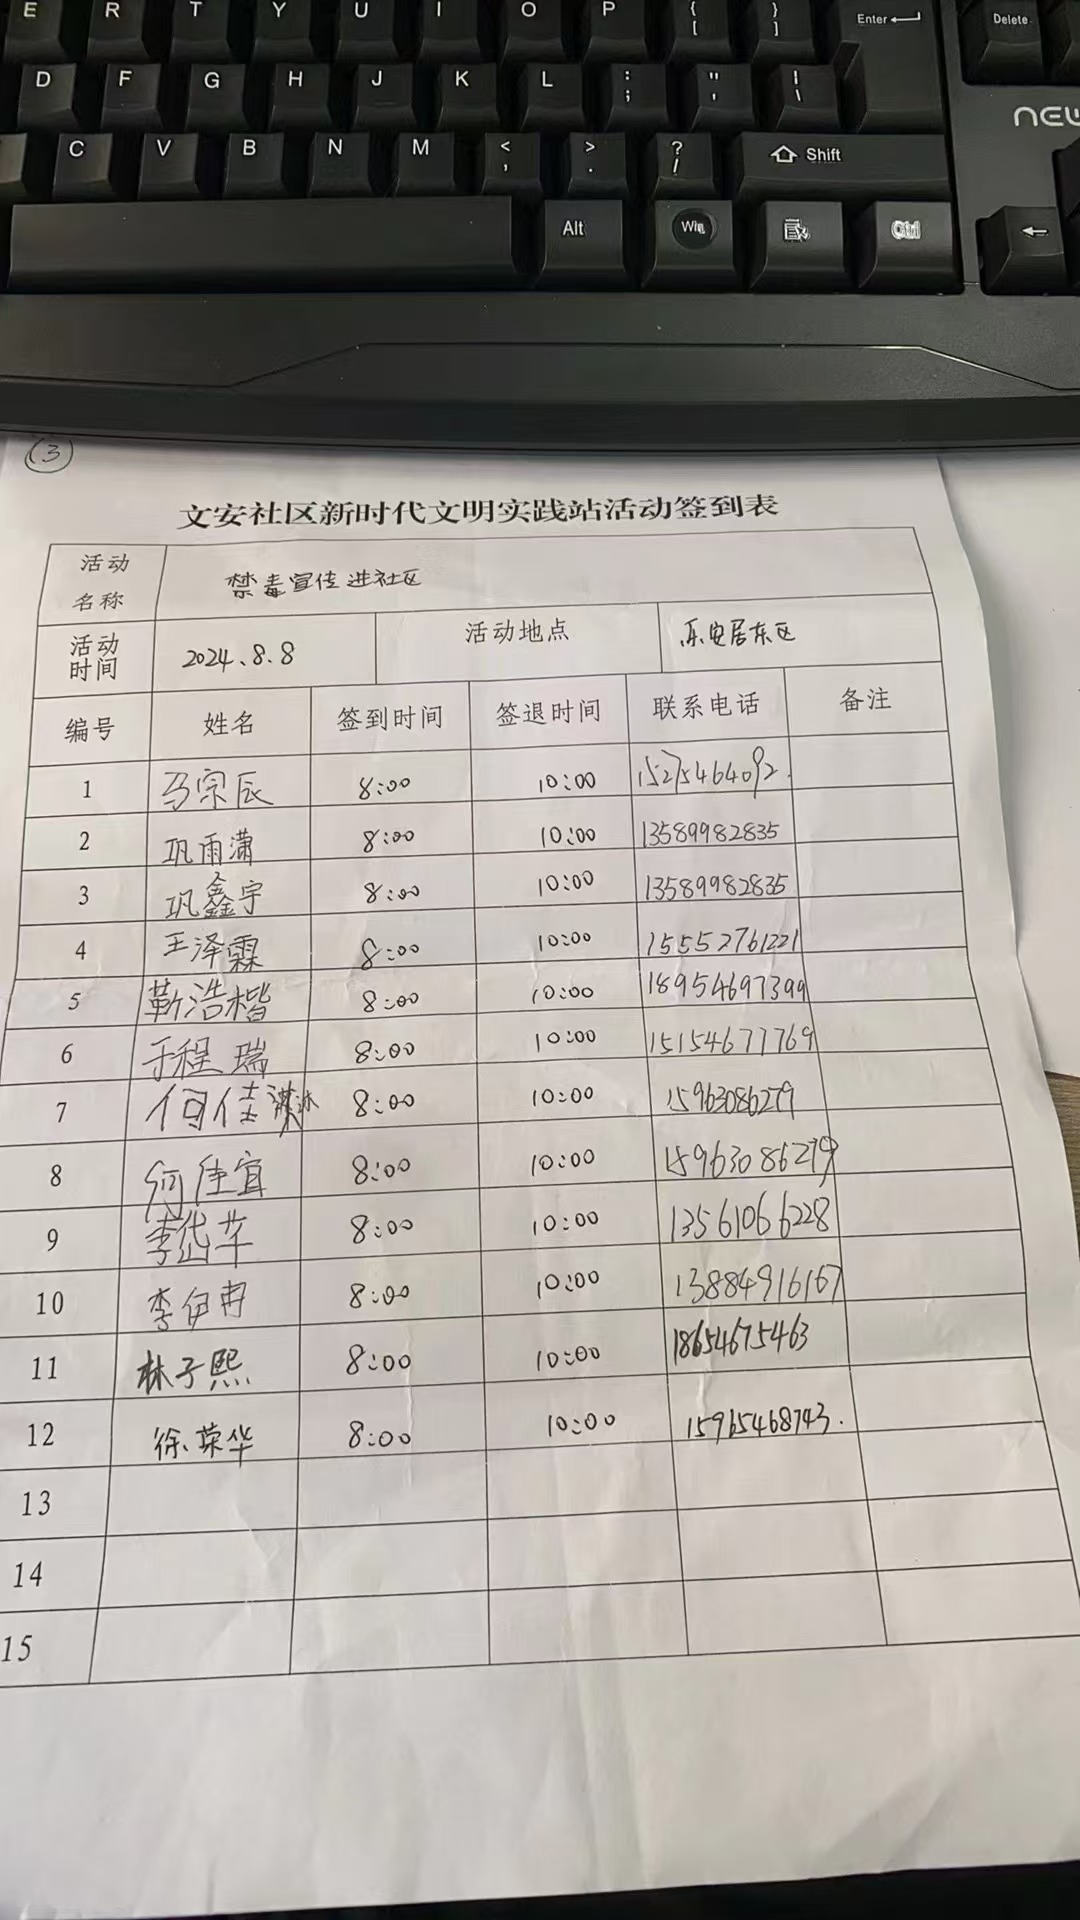 E R T Y U I O P { [ } ] Enter Delete
D F G H J K L : ; " ' | \
NEW
C V B N M < , > . ? / Shift
Alt Win Ctrl ←
3
文安社区新时代文明实践站活动签到表
活动名称 禁毒宣传进社区
活动时间 2024.8.8 活动地点 乐安居东区
编号 姓名 签到时间 签退时间 联系电话 备注
1 马宗辰 8:00 10:00 15275464092.
2 巩雨潇 8:00 10:00 13589982835
3 巩鑫宇 8:00 10:00 13589982835
4 王泽霖 8:00 10:00 15552761221
5 靳浩楷 8:00 10:00 18954697399
6 于程瑞 8:00 10:00 15154677769
7 何佳 8:00 10:00 15963086279
8 何佳宜 8:00 10:00 15963086279
9 李岱芊 8:00 10:00 13561066228
10 李伊冉 8:00 10:00 13884916167
11 林子熙 8:00 10:00 18654675463
12 徐荣华 8:00 10:00 15965468743.
13
14
15